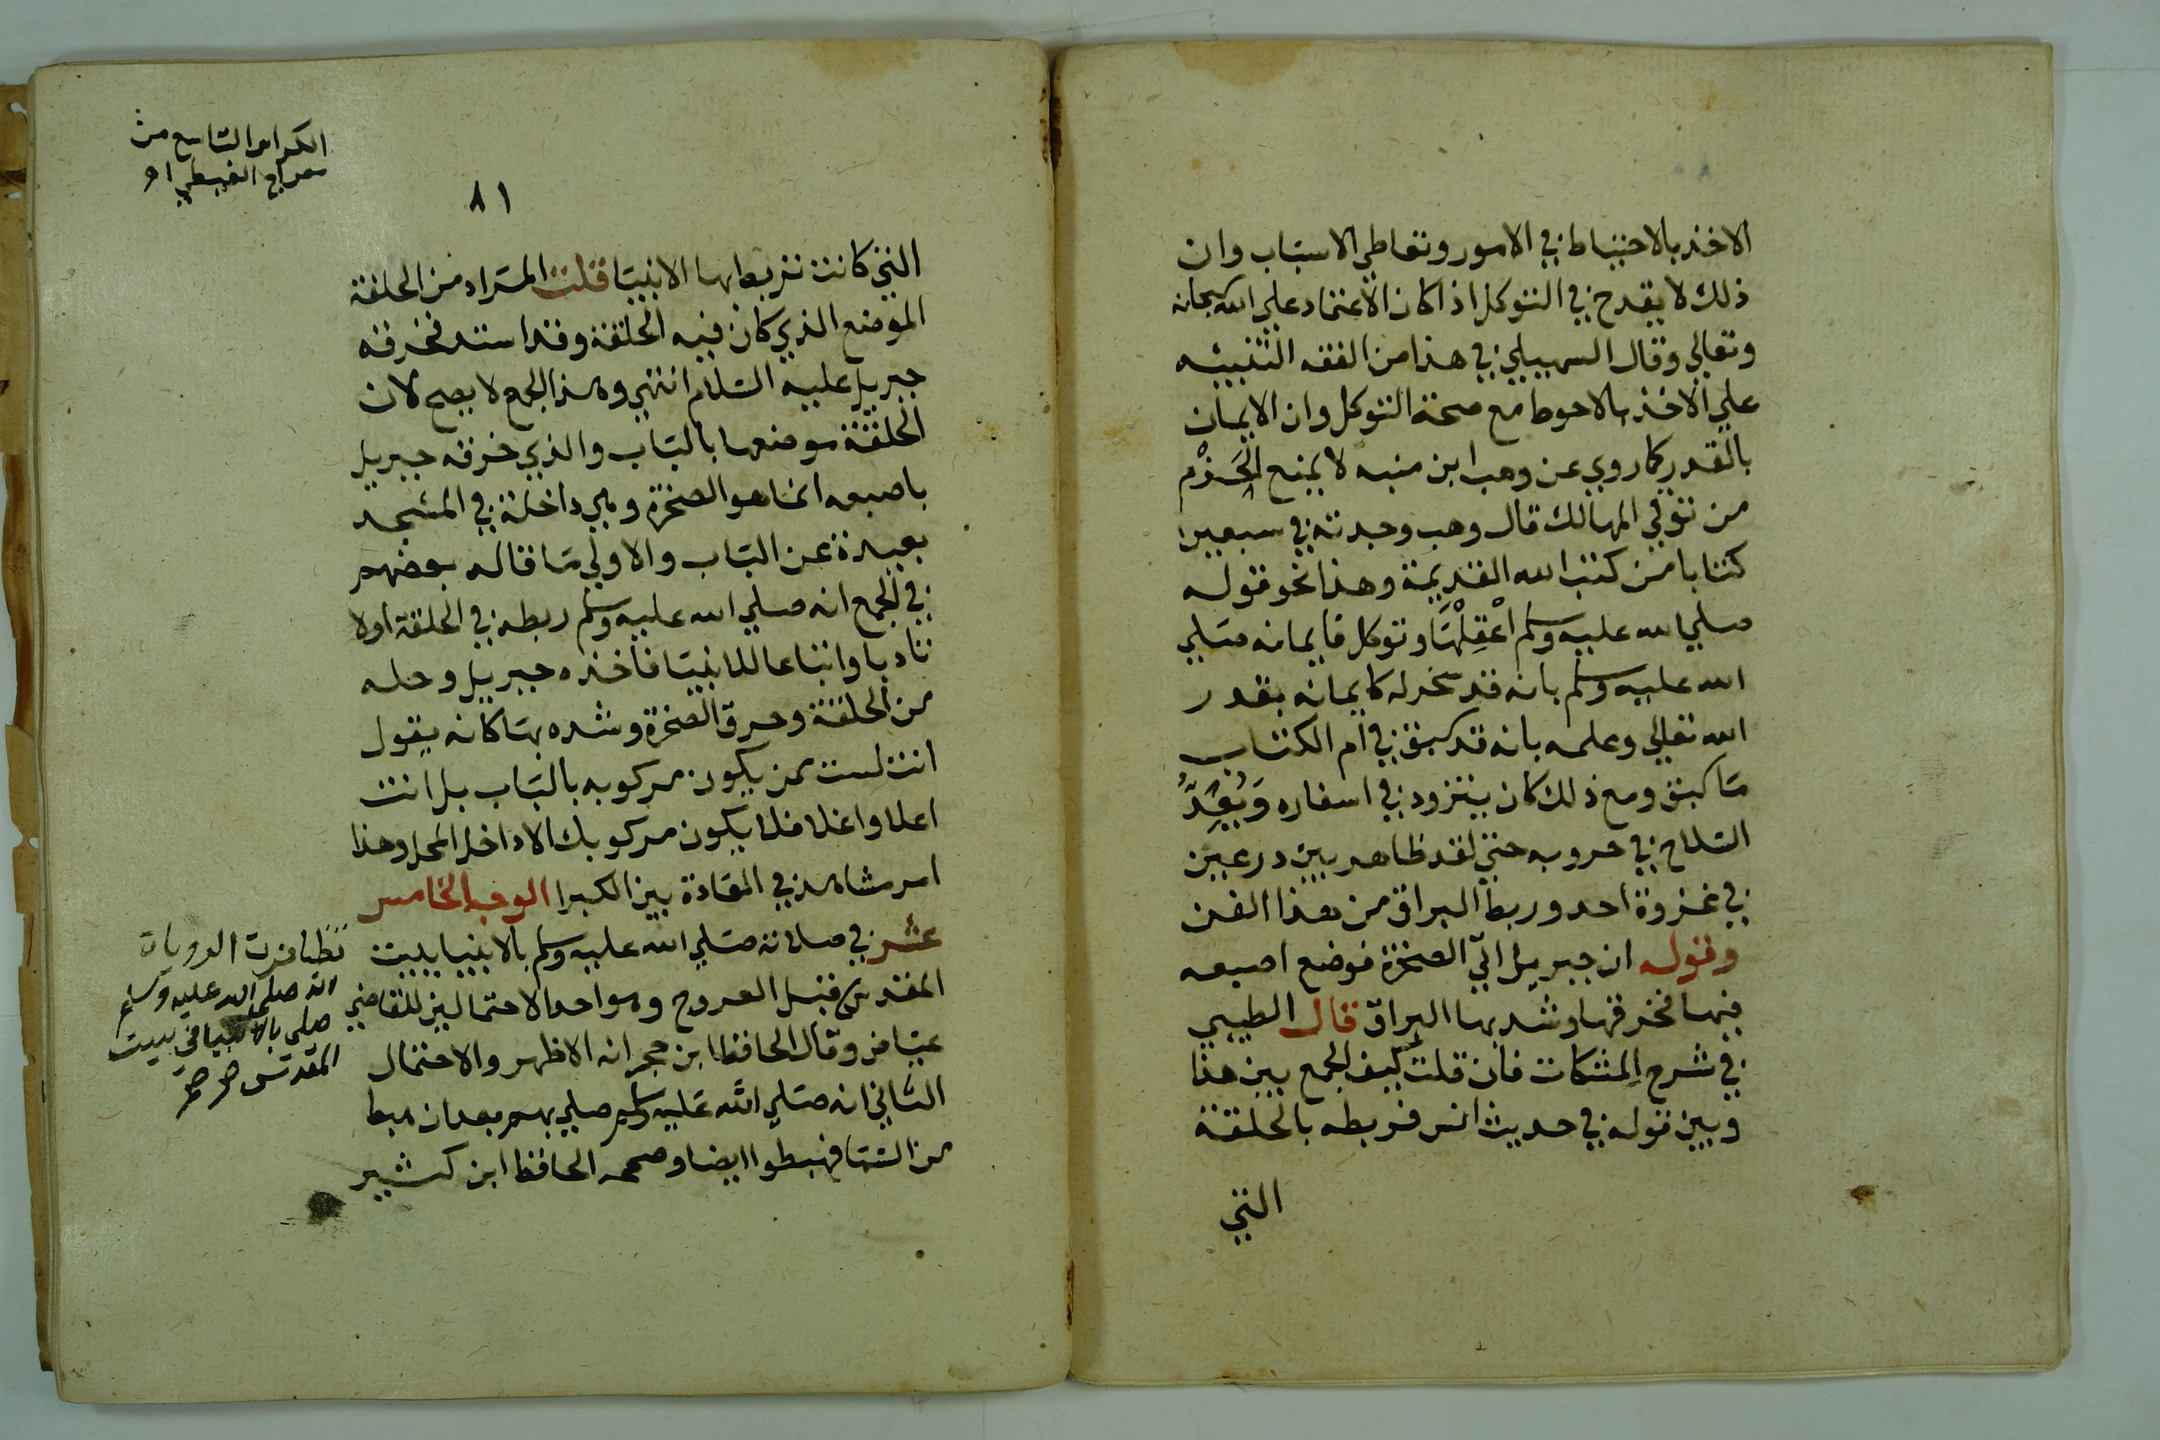 الاخذ بالاحتياط في الامور وتعاطي الاسباب وان
ذلك لا يقدح في التوكل اذا كان الاعتماد علي الله سبحانه
وتعالي وقال السهيلي في هذا من الفقه التنبيه
علي الاخذ بالاحوط مع صحة التوكل وان الايمان
بالقدر كما روي عن وهب ابن منبه لا يمنع الحَزْم
من توقي المهالك قال وهب وجدته في سبعين
كتابا من كتب الله القديمة وهذا نحو قوله
صلي الله عليه وسلم اعْقِلْهَا وتوكل فايمانه صلي
الله عليه وسلم بانه قد سخر له كايمانه بقدر
الله تعالي وعلمه بانه قد سبق في ام الكتاب
ما سبق ومع ذلك كان يتزود في اسفاره وَيُعِدُّ
السلاح في حروبه حتي لقد ظاهر بين درعين
في غزوة احد وربط البراق من هذا الفن
وقوله ان جبريل اتي الصخرة فوضع اصبعه
فيها فخرقها وشد بها البراق قال الطيبي
في شرح المشكات فان قلت كيف الجمع بين هذا
وبين قوله في حديث انس فربطه بالحلقة
التي
الكراس التاسع من
معراج الغيطي
٨١
التي كانت تربط بها الانبيا قلت المراد من الحلقة
الموضع الذي كان فيه الحلقة وقد استد فخرقه
جبريل عليه السلام انتهي وهذا الجمع لا يصح لان
الحلقة موضعها بالباب والذي خرقه جبريل
باصبعه انما هو الصخرة وهي داخلة في المسجد
بعيدة عن الباب والاولي ما قاله بعضهم
في الجمع انه صلي الله عليه وسلم ربطه في الحلقة اولا
تادبا واتباعا للانبيا فاخذه جبريل وحله
من الحلقة وخرق الصخرة وشده بها كانه يقول
انت لست ممن يكون مركوبه بالباب بل انت
اعلا واغلا فلا يكون مركوبك الا داخل المحل وهذا
امر مشاهد في العادة بين الكبرا الوجه الخامس
عشر في صلاته صلي الله عليه وسلم بالانبيا ببيت
المقدس قبل العروج وهو احد الاحتمالين للقاضي
عياض وقال الحافظ ابن حجر انه الاظهر والاحتمال
الثاني انه صلي الله عليه وسلم صلي بهم بعد ان هبط
من السما فهبطوا ايضا وصححه الحافظ ابن كثير
تظافرت الروايات
انه صلى الله عليه وسلم
صلى بالانبيا في بيت
المقدس